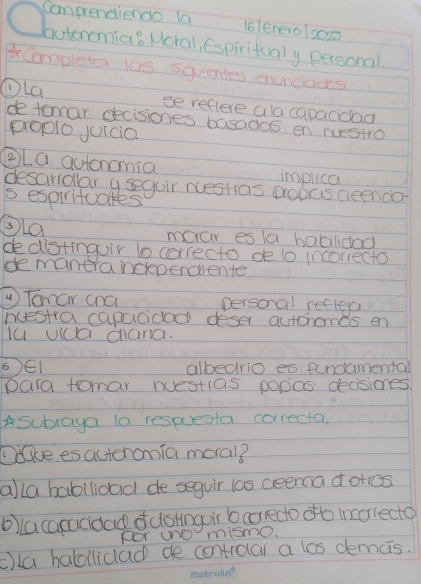 Comprendiendo la 16/Enero/2025
autonomia: Moral, Espiritual y personal.
*Completa las siguientes enunciados.
① La se refiere a la capacidad
de tomar decisiones basados en nuestro
propio juicio
② La autonomia implica
desarrollar y seguir nuestras propias creencia-
s espirituales
③ La moral es la habilidad
de distinguir lo correcto de lo incorrecto
de manera independiente
④ Tomar una personal refleja
nuestra capacidad de ser autónomos en
la vida diaria.
⑤ El albedrio es fundamental
para tomar nuestras popias decisiones.
*Subraya la respuesta correcta.
① ¿Que es autonomía moral?
a) La habilidad de seguir las creencia d otros
b) La capacidad d distinguir lo correcto d lo incorrecto
por uno mismo.
c) La habilidad de controlar a los demás.
Estrella